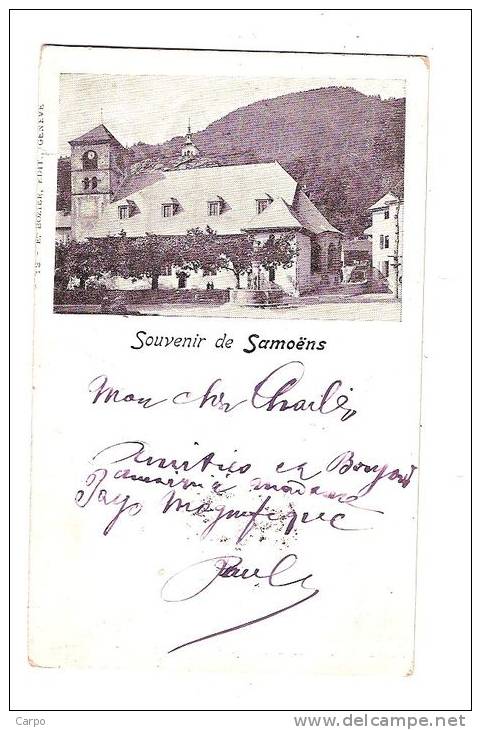 12 - E. ROSIER, EDIT., GENÈVE
Souvenir de Samoëns
Mon cher Charles,
amitiés et
à madame
Pays Magnifique
Paul
Carpo
www.delcampe.net